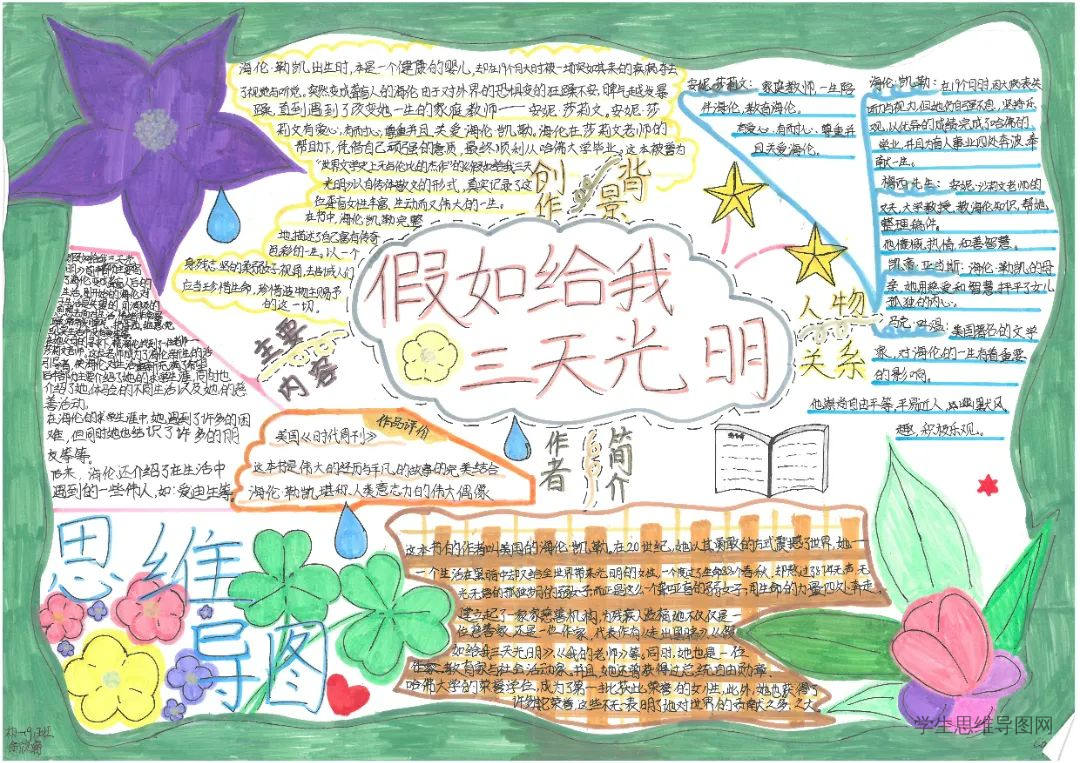 海伦·勒凯出生时,本是一个健康的婴儿,却在19个月大时被一场突如其来的疾病夺去
了视觉与听觉。突然变成盲聋人的海伦由于对外界的恐惧变的狂躁不安,脾气越发暴
躁,直到遇到了改变她一生的家庭教师——安妮·莎莉文,安妮·莎
莉文有爱心、有耐心、尊重并且关爱海伦·凯勒,海伦在莎莉文老师的
帮助下,凭借自己顽强的意志,最终顺利从哈佛大学毕业。这本被誉为
“世界文学史上无与伦比的杰作”的《假如给我三天
光明》以自传体散文的形式,真实记录了这
位盲聋女性丰富、生动而又伟大的一生。
在书中,海伦·凯勒完整
地描述了自己富有传奇
色彩的一生。以一个
身残志坚的柔弱女子视角,去告诫人们
应当珍惜生命,珍惜造物主赐予
的这一切。
创作
背景
安妮·莎莉文:家庭教师,一生陪
伴海伦,教育海伦。
有爱心、有耐心、尊重并
且关爱海伦。
海伦·凯勒:在19个月时,因大病丧失
听力与视力,但她仍自强不息,坚持乐
观,以优异的成绩完成了哈佛的
学业,并且为盲人事业四处奔波,奉
献一生。
梅西先生:安妮·莎莉文老师的
丈夫,大学教授,教海伦知识,帮她
整理稿件。
他慷慨、热情、和善智慧。
凯蒂·亚当斯:海伦·勒凯的母
亲,她用慈爱和智慧,抚平了女儿
孤独的内心。
马克·吐温:美国著名的文学
家,对海伦的一生有着重要
的影响。
他崇尚自由平等,平易近人,幽幽默风
趣,积极乐观。
人物
关系
假如给我
三天光明
主要
内容
介绍了她体验的不同生活以及她的慈
善活动。
在海伦的求学生涯中,她遇到了许多的困
难,但同时她也结识了许多的朋
友等等。
后来,海伦还介绍了在生活中
遇到的一些伟人,如:爱迪生等
作品评价
美国《时代周刊》
这本书是伟大的经历与平凡的故事的完美结合
海伦·勒凯堪称人类意志力的伟大偶像
作者
简介
这本书的作者叫美国的海伦·凯勒。在20世纪,她以其勇敢的方式震撼了世界,她一
一个生活在黑暗中却又给全世界带来光明的女性,一个度过了生命88个春秋,却熬过了87年无声、无
光、无语的孤独岁月的弱女子。而正是这么一个聋盲哑的弱女子,用生命的力量四处奔走
建立起了一家家慈善机构,为残疾人造福,她不仅仅是一
位慈善家,还是一位作家,代表作有《走出黑暗》《假
如给我三天光明》《我的老师》等。同时,她也是一位
作家、教育家与社会活动家。并且,她还曾获得过总统自由勋章、
哈佛大学的荣誉学位,成为了第一个获此荣誉的女性,此外,她也获得了
许多奖荣誉,这些不无表明了她对世界的贡献之多、之大
思维
导图
学生思维导图网